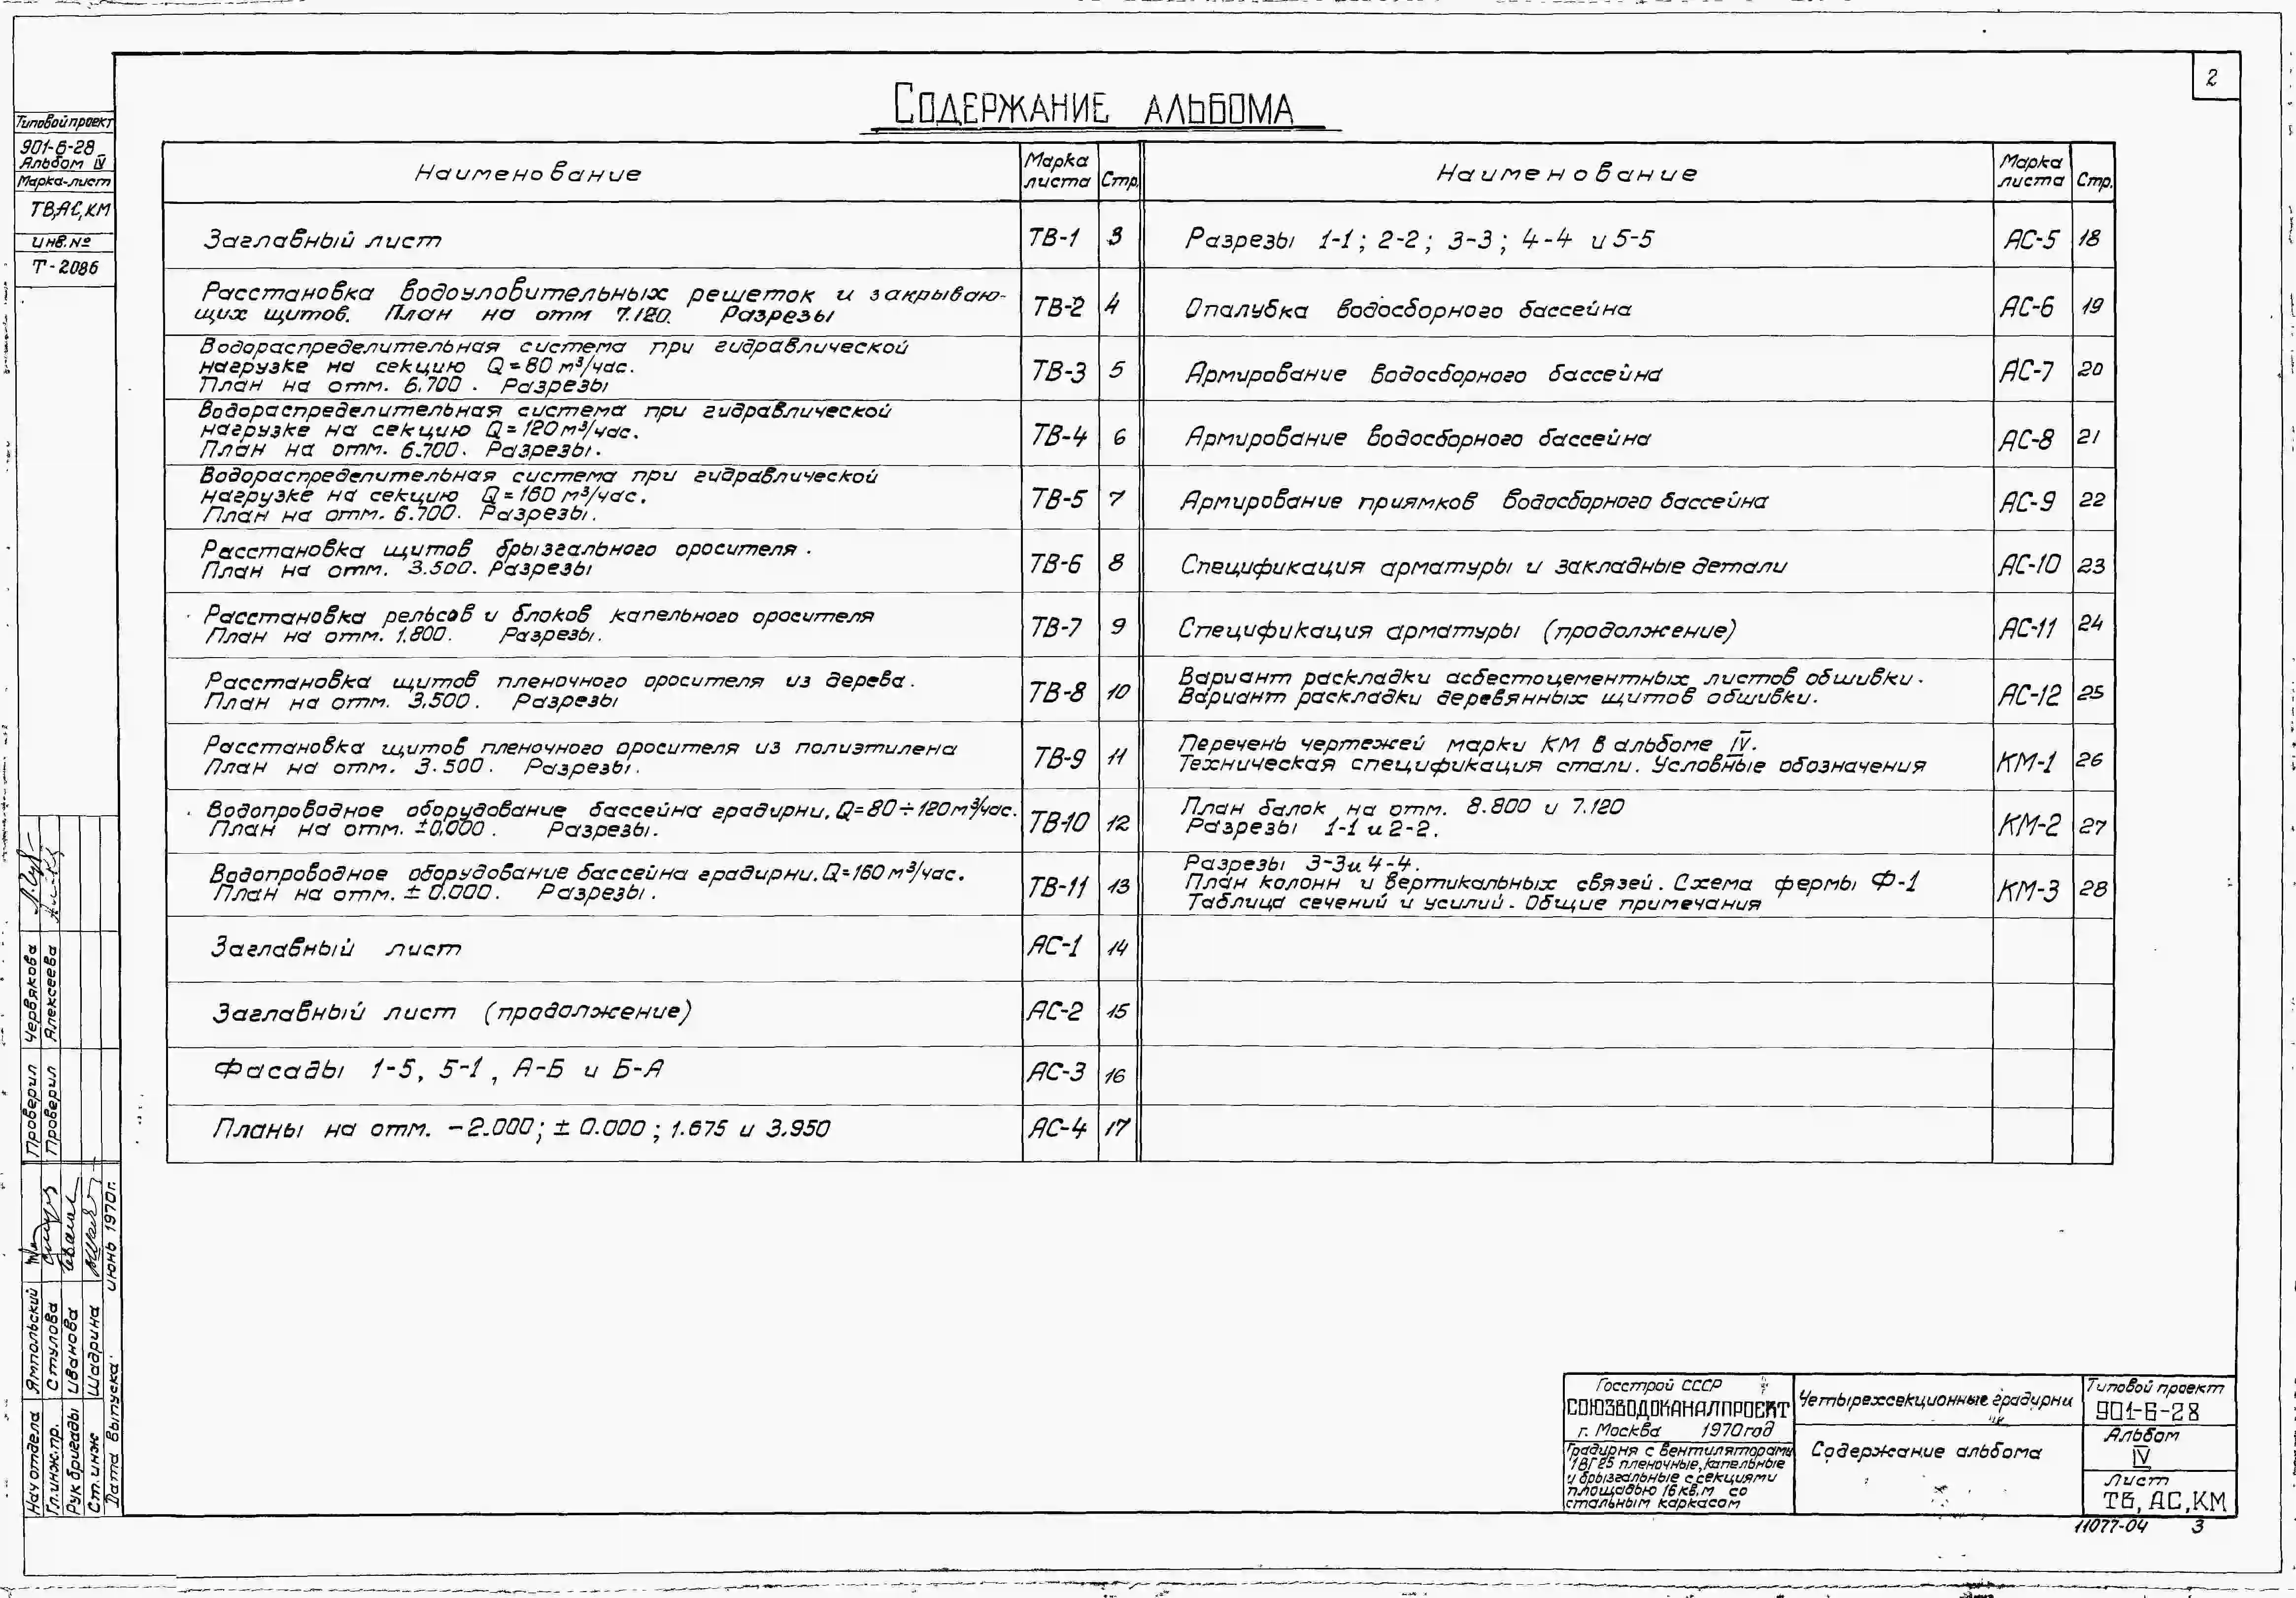 2
Содержание альбома
Типовой проект
901-6-28
Альбом IV
Марка-лист
ТВ, АС, КМ
инв. №
Т-2086
Наименование
Марка листа
Стр.
Заглавный лист
ТВ-1
3
Расстановка водоуловительных решеток и закрываю-
щих щитов. План на отм 7.120. Разрезы
ТВ-2
4
Водораспределительная система при гидравлической
нагрузке на секцию Q=80 м³/час.
План на отм. 6.700. Разрезы
ТВ-3
5
Водораспределительная система при гидравлической
нагрузке на секцию Q=120 м³/час.
План на отм. 6.700. Разрезы.
ТВ-4
6
Водораспределительная система при гидравлической
нагрузке на секцию Q=160 м³/час.
План на отм. 6.700. Разрезы.
ТВ-5
7
Расстановка щитов брызгального оросителя.
План на отм. 3.500. Разрезы
ТВ-6
8
Расстановка рельсов и блоков капельного оросителя
План на отм. 1.800. Разрезы.
ТВ-7
9
Расстановка щитов пленочного оросителя из дерева.
План на отм. 3,500. Разрезы
ТВ-8
10
Расстановка щитов пленочного оросителя из полиэтилена
План на отм. 3.500. Разрезы.
ТВ-9
11
Водопроводное оборудование бассейна градирни, Q=80÷120 м³/час.
План на отм. ±0,000. Разрезы.
ТВ-10
12
Водопроводное оборудование бассейна градирни. Q=160 м³/час.
План на отм. ± 0.000. Разрезы.
ТВ-11
13
Заглавный лист
АС-1
14
Заглавный лист (продолжение)
АС-2
15
Фасады 1-5, 5-1, А-Б и Б-А
АС-3
16
Планы на отм. -2.000; ± 0.000; 1.675 и 3.950
АС-4
17
Наименование
Марка листа
Стр.
Разрезы 1-1; 2-2; 3-3; 4-4 и 5-5
АС-5
18
Опалубка водосборного бассейна
АС-6
19
Армирование водосборного бассейна
АС-7
20
Армирование водосборного бассейна
АС-8
21
Армирование приямков водосборного бассейна
АС-9
22
Спецификация арматуры и закладные детали
АС-10
23
Спецификация арматуры (продолжение)
АС-11
24
Вариант раскладки асбестоцементных листов обшивки.
Вариант раскладки деревянных щитов обшивки.
АС-12
25
Перечень чертежей марки КМ в альбоме IV.
Техническая спецификация стали. Условные обозначения
КМ-1
26
План балок на отм. 8.800 и 7.120
Разрезы 1-1 и 2-2.
КМ-2
27
Разрезы 3-3 и 4-4.
План колонн и вертикальных связей. Схема фермы Ф-1
Таблица сечений и усилий. Общие примечания
КМ-3
28
Проверил Червякова
Проверил Алексеева
Нач отдела Ямпольский
Гл.инж.пр. Стулова
Рук бригады Иванова
Ст.инж Шадрина
Дата выпуска июнь 1970г.
Госстрой СССР
СОЮЗВОДОКАНАЛПРОЕКТ
г. Москва 1970год
Градирня с вентиляторами
1ВГ25 пленочные, капельные
и брызгальные с секциями
площадью 16 кв.м со
стальным каркасом
Четырехсекционные градирни
Содержание альбома
Типовой проект
901-6-28
Альбом
IV
Лист
ТВ, АС, КМ
11077-04 3